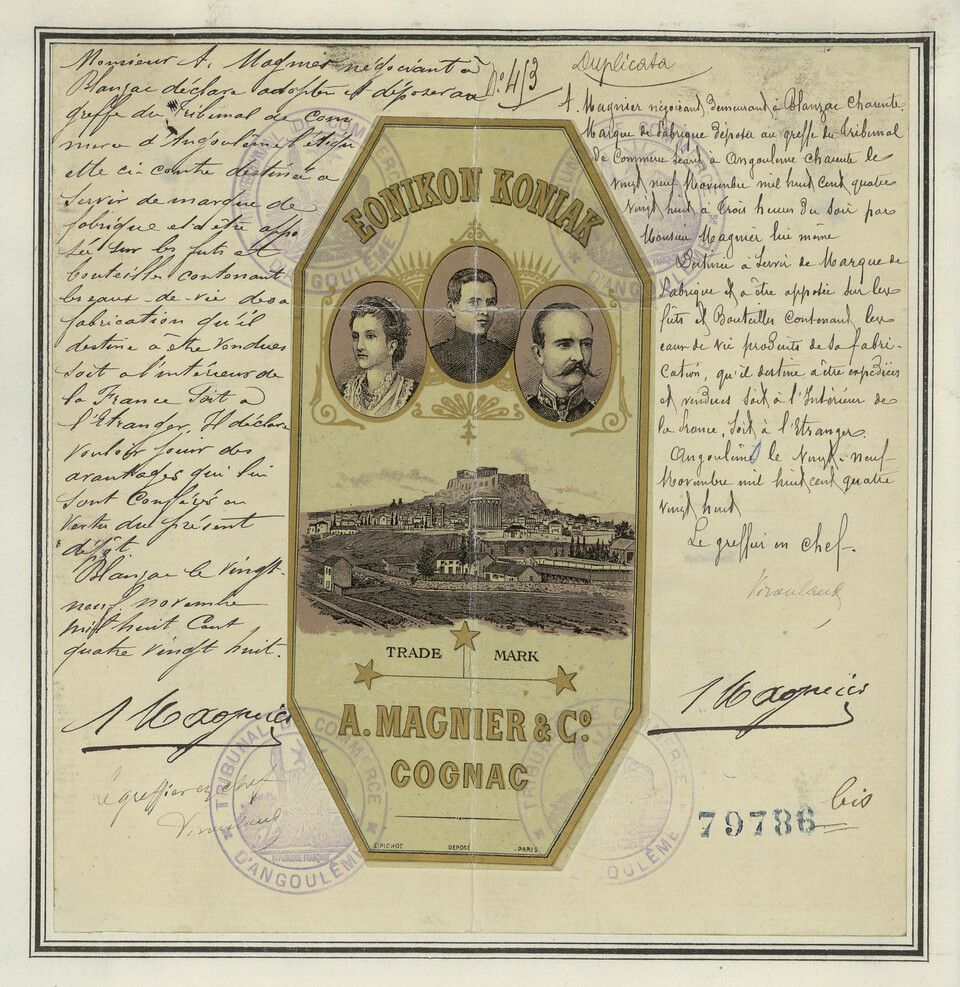 Monsieur A. Magnier négociant à
Blanzac déclare adopter et déposer au
greffe du Tribunal de Com
merce d'Angoulême l'étiqu
ette ci-contre destinée a
servir de marque de
fabrique et d'être appo
sée sur les fûts et
bouteilles contenant
les eaux-de-vie de sa
fabrication qu'il
destine a etre vendues
soit a l'intérieur de
la France soit a
l'Etranger. Il déclare
vouloir jouir des
avantages qui lui
sont Conférés en
vertu du présent
dépôt.
Blanzac le vingt-
neuf novembre
mil huit Cent
quatre vingt huit.
A Magnier
Le greffier en chef
N° 453
Duplicata
A. Magnier négociant, Demeurant à Blanzac Charente.
Marque de Fabrique déposée au greffe du Tribunal
De Commerce séant à Angoulême Charente le
Vingt neuf Novembre mil huit cent quatre
Vingt huit à Trois heures du soir par
Monsieur Magnier lui même
Destinée à servir de Marque de
Fabrique et à être apposée sur les
fûts et Bouteilles Contenant les
eaux de vie produits de sa fabri-
cation, qu'il destine à être expédiées
et vendues soit à l'Intérieur de
la France, soit à l'Etranger.
Angoulême le Vingt-neuf
Novembre mil huit cent quatre
vingt huit
Le greffier en chef.
A Magnier
79786 bis
EONIKON KONIAK
TRADE MARK
A. MAGNIER & Cº
COGNAC
E. PICHOT DEPOSÉ PARIS
TRIBUNAL DE COMMERCE
D'ANGOULÊME
RÉPUBLIQUE FRANÇAISE